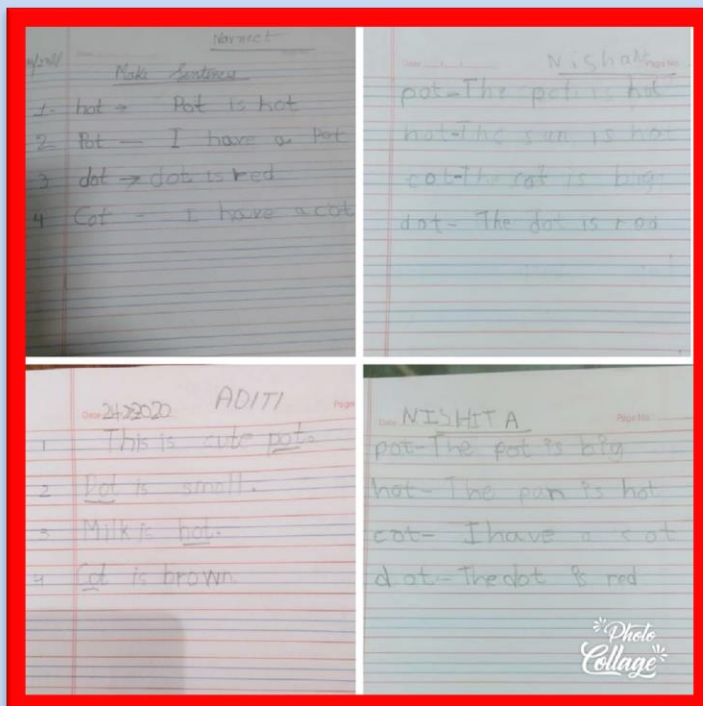 Make Sentences
1- hot → Pot is hot
2 Pot — I have a Pot
3 dot → dot is red
4 Cot - I have a cot
Date Nishant Page No.
pot-The pot is hot
hot-The sun is hot
cot-The cot is big
dot- The dot is red
ADITI
Date 24/7/2020 Page
1 This is cute pot.
2 Pot is small.
3 Milk is hot.
4 Cot is brown
Date NISHITA Page No.
pot-The pot is big
hot- The pan is hot
cot- I have a cot
dot-The dot is red
Photo
Collage